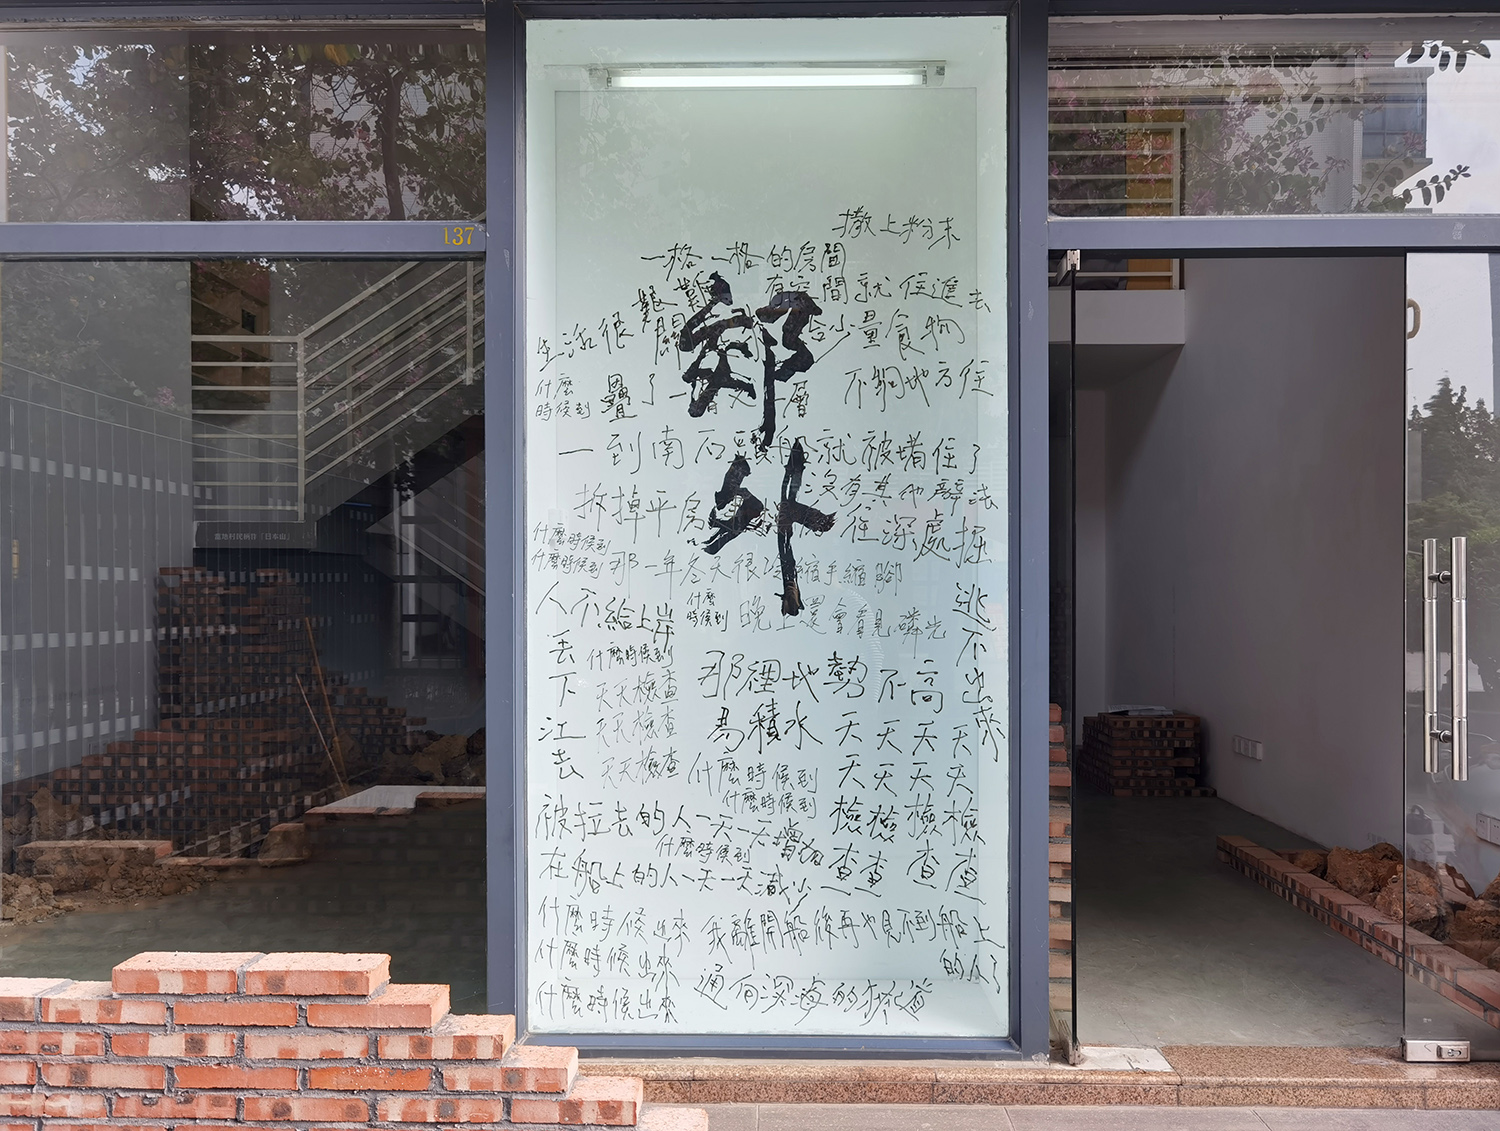 137
撒上粉末
一格一格的房間
有空間就住進去
艱難
生活很
含少量食物
什麼
時候到
疊了一層又一層
不夠地方住
郊外
一到南石頭船就被堵住了
沒有其他辦法
拆掉平房
往深處掘
什麼時候到
什麼時候到
那一年冬天很冷縮手縮腳
人不給上岸
什麼
時候到
晚上還會看見磷光
逃不出來
丟下江去
什麼時候到
天天檢查
天天檢查
天天檢查
那裡地勢不高
易積水
什麼時候到
什麼時候到
天天檢查
天天檢查
天天檢查
天天檢查
被拉去的人一天一天增加
什麼時候到
在船上的人一天一天減少
什麼時候出來
我離開船後再也見不到船上的人了
什麼時候出來
什麼時候出來
通向深海的